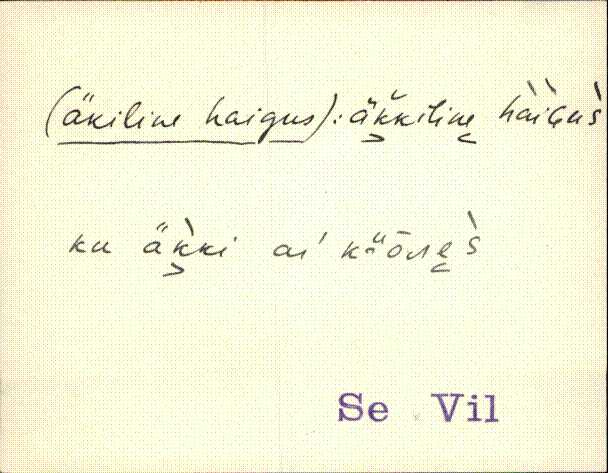 (äkiline haigus): äkkiline häigus
ku äkki ai
Se Vil